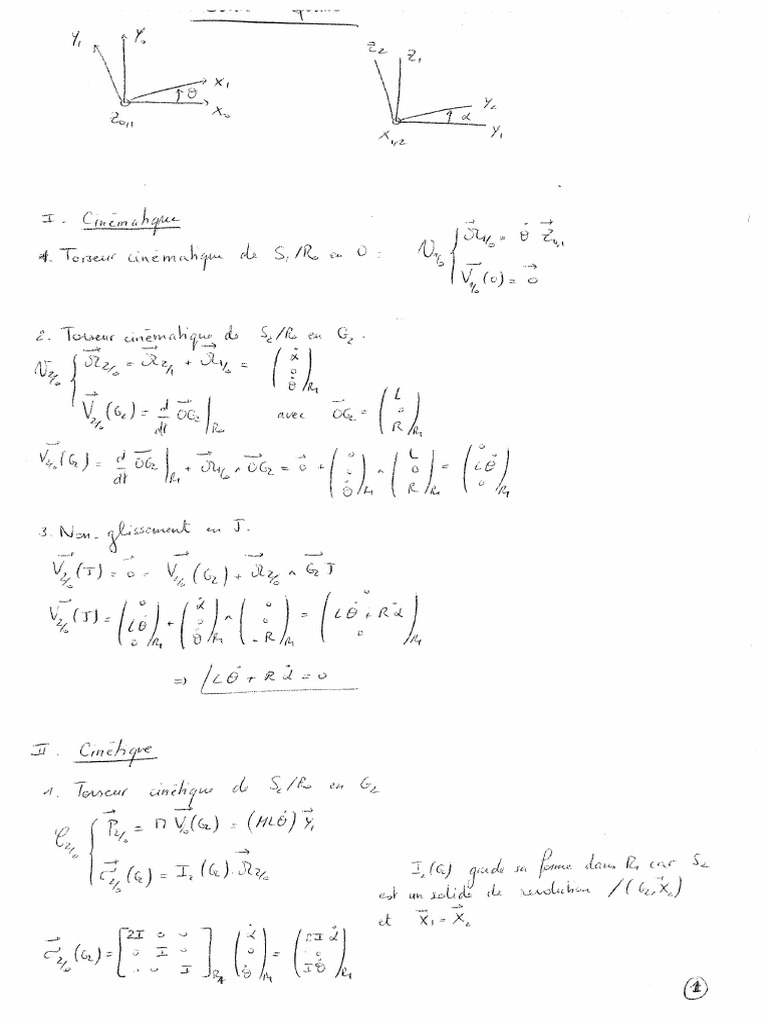 Y₁ Y₀ X₁ θ X₀ Z₀,₁
Z₂ Z₁ Y₂ α Y₁ X₁,₂
I. Cinématique
1. Torseur cinématique de S₁/R₀ en O : V₁/₀ { Ω⃗₁/₀ = θ̇ Z⃗₀,₁
V⃗₁/₀(O) = 0⃗
2. Torseur cinématique de S₂/R₀ en G₂.
V₂/₀ { Ω⃗₂/₀ = Ω⃗₂/₁ + Ω⃗₁/₀ = (α̇ 0 θ̇)R₁
V⃗₂/₀(G₂) = d/dt OG⃗₂|R₀ avec OG⃗₂ = (L 0 R)R₁
V⃗₂/₀(G₂) = d/dt OG⃗₂|R₁ + Ω⃗₁/₀ ∧ OG⃗₂ = 0⃗ + (0 0 θ̇)R₁ ∧ (L 0 R)R₁ = (0 Lθ̇ 0)R₁
3. Non-glissement en J.
V⃗₂/₀(J) = 0⃗ = V⃗₂/₀(G₂) + Ω⃗₂/₀ ∧ G⃗₂J
V⃗₂/₀(J) = (0 Lθ̇ 0)R₁ + (α̇ 0 θ̇)R₁ ∧ (0 0 -R)R₁ = (0 Lθ̇ + Rα̇ 0)R₁
⇒ Lθ̇ + Rα̇ = 0
II. Cinétique
1. Torseur cinétique de S₂/R₀ en G₂
C₂/₀ { P⃗₂/₀ = M V⃗₂/₀(G₂) = (MLθ̇) Y⃗₁
σ⃗₂/₀(G₂) = I₂(G₂).Ω⃗₂/₀
I₂(G₂) garde sa forme dans R₁ car S₂
est un solide de révolution /(G₂,X⃗₂)
et X⃗₁ = X⃗₂
σ⃗₂/₀(G₂) = [2I 0 0 0 I 0 0 0 I]R₁ (α̇ 0 θ̇)R₁ = (2Iα̇ 0 Iθ̇)R₁
1